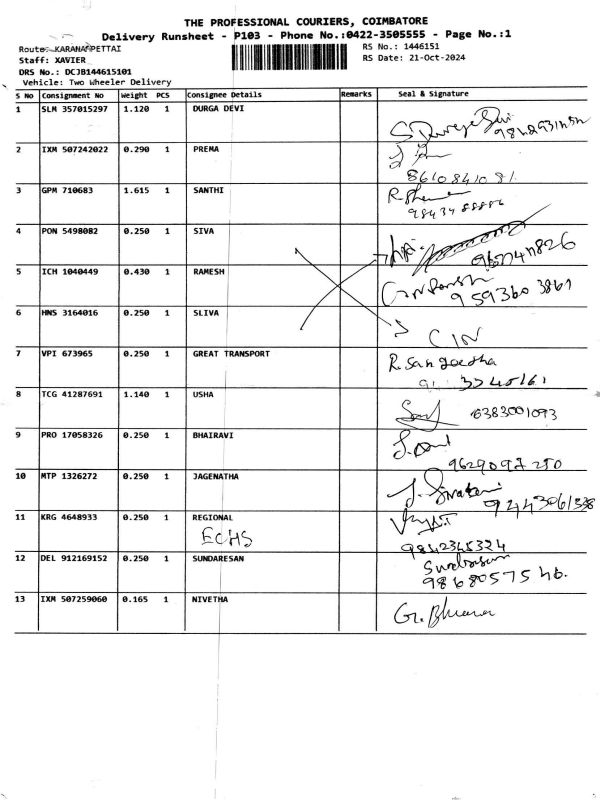 THE PROFESSIONAL COURIERS, COIMBATORE
Delivery Runsheet - P103 - Phone No.:0422-3505555 - Page No.:1
Route: KARANAMPETTAI
RS No.: 1446151
Staff: XAVIER
RS Date: 21-Oct-2024
DRS No.: DCJB144615101
Vehicle: Two Wheeler Delivery
S No Consignment No Weight PCS Consignee Details Remarks Seal & Signature
1 SLM 357015297 1.120 1 DURGA DEVI
2 IXM 507242022 0.290 1 PREMA
8610841081
3 GPM 710683 1.615 1 SANTHI
4 PON 5498082 0.250 1 SIVA
5 ICH 1040449 0.430 1 RAMESH
959360 3861
6 HNS 3164016 0.250 1 SLIVA
7 VPI 673965 0.250 1 GREAT TRANSPORT
R. Sangeetha
8 TCG 41287691 1.140 1 USHA
6383001093
9 PRO 17058326 0.250 1 BHAIRAVI
9629097250
10 MTP 1326272 0.250 1 JAGENATHA
11 KRG 4648933 0.250 1 REGIONAL
ECHS
9842345324
12 DEL 912169152 0.250 1 SUNDARESAN
9868057546.
13 IXM 507259060 0.165 1 NIVETHA